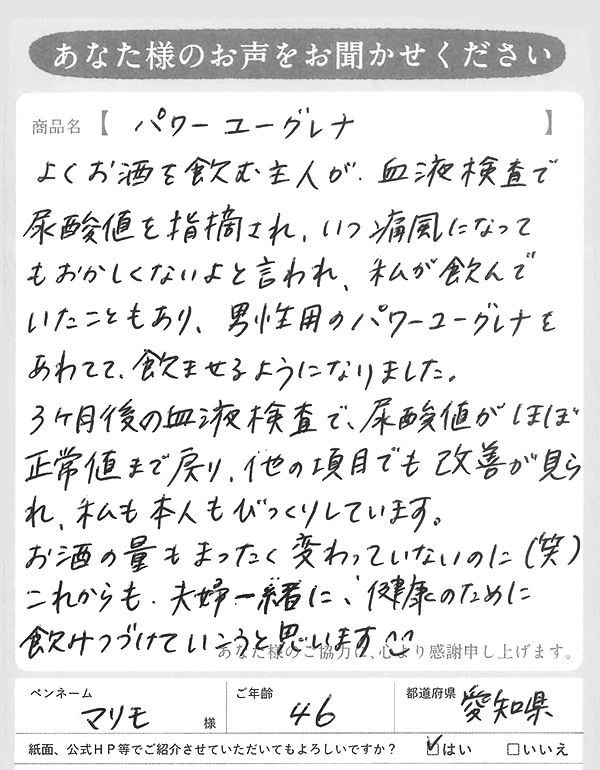 あなた様のお声をお聞かせください
商品名【 パワーユーグレナ 】
よくお酒を飲む主人が、血液検査で
尿酸値を指摘され、いつ痛風になって
もおかしくないよと言われ、私が飲んで
いたこともあり、男性用のパワーユーグレナを
あわてて、飲ませるようになりました。
3ヶ月後の血液検査で、尿酸値がほぼ
正常値まで戻り、他の項目でも改善が見ら
れ、私も本人もびっくりしています。
お酒の量もまったく変わっていないのに(笑)
これからも、夫婦一緒に、健康のために
飲みつづけていこうと思います
あなた様のご協力に、心より感謝申し上げます。
ペンネーム マリモ 様 ご年齢 46 都道府県 愛知県
紙面、公式HP等でご紹介させていただいてもよろしいですか? ☑はい □いいえ